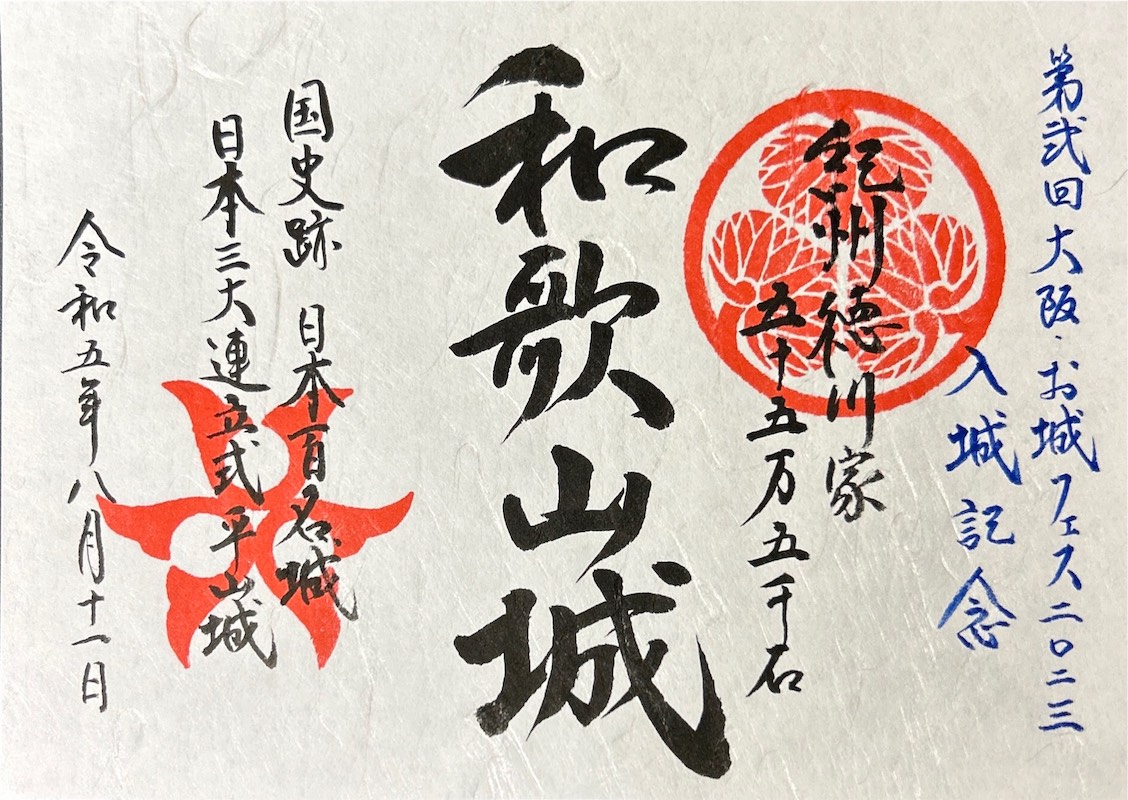 第弐回大阪・お城フェス二〇二三
入城記念
紀州徳川家
五十五万五千石
和歌山城
国史跡 日本百名城
日本三大連立式平山城
令和五年八月十一日